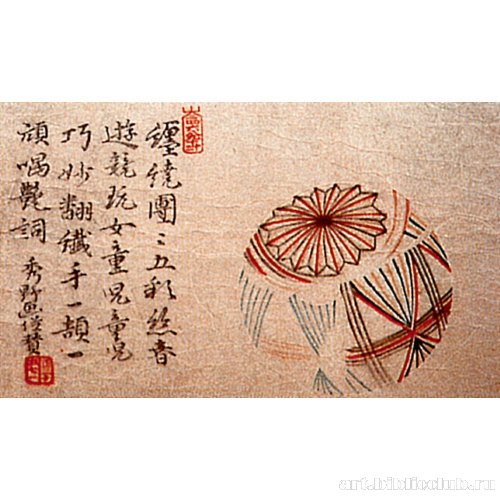 纒繞團〻五彩絲春
遊競玩女童児童児
巧妙翻纖手一頡一
頏唱艷詞 秀野 賛
art.biblioclub.ru